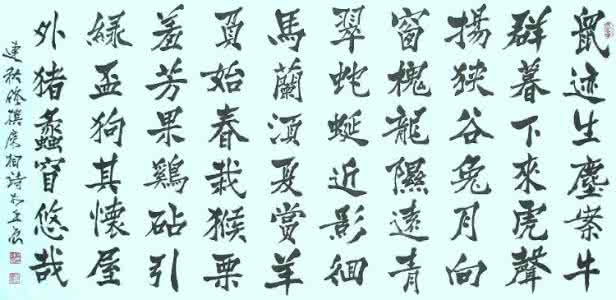 鼠迹生塵案牛
群暮下來虎聲
揚狹谷兔月向
窗槐龍隰遠青
翠蛇蜒近影徊
馬蘭須夏賞羊
負始春栽猴栗
羞芳果鷄砧引
緑盃狗其懷屋
外猪蠡窅悠哉